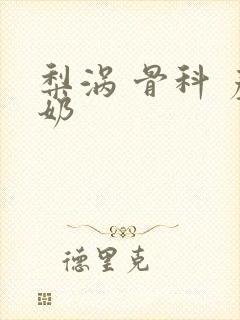 梨涡 骨科
奶
德里克